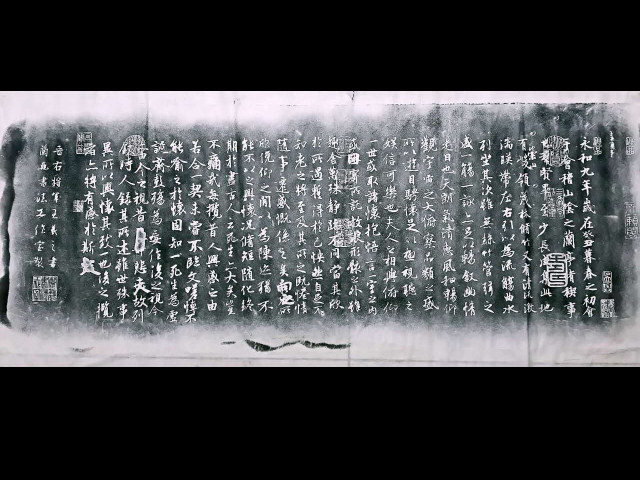 永和九年歲在癸丑暮春之初會
于會稽山陰之蘭亭脩稧事
也群賢畢至少長咸集此地
有峻領茂林脩竹又有清流激
湍暎帶左右引以為流觴曲水
列坐其次雖無絲竹管弦之
盛一觴一詠亦足以暢敘幽情
是日也天朗氣清惠風和暢仰
觀宇宙之大俯察品類之盛
所以遊目騁懷足以極視聽之
娛信可樂也夫人之相與俯仰
一世或取諸懷抱悟言一室之內
或因寄所託放浪形骸之外雖
趣舍萬殊靜躁不同當其欣
於所遇暫得於己快然自足不
知老之將至及其所之既惓情
隨事遷感慨係之矣向之所
欣俛仰之間以為陳迹猶不
能不以之興懷況脩短隨化終
期於盡古人云死生亦大矣豈
不痛哉每攬昔人興感之由
若合一契未嘗不臨文嗟悼不
能喻之於懷固知一死生為虛
誕齊彭殤為妄作後之視今
亦由今之視昔悲夫故列
敘時人錄其所述雖世殊事
異所以興懷其致一也後之攬
者亦將有感於斯文
晉右將軍王羲之書
書法工作室製